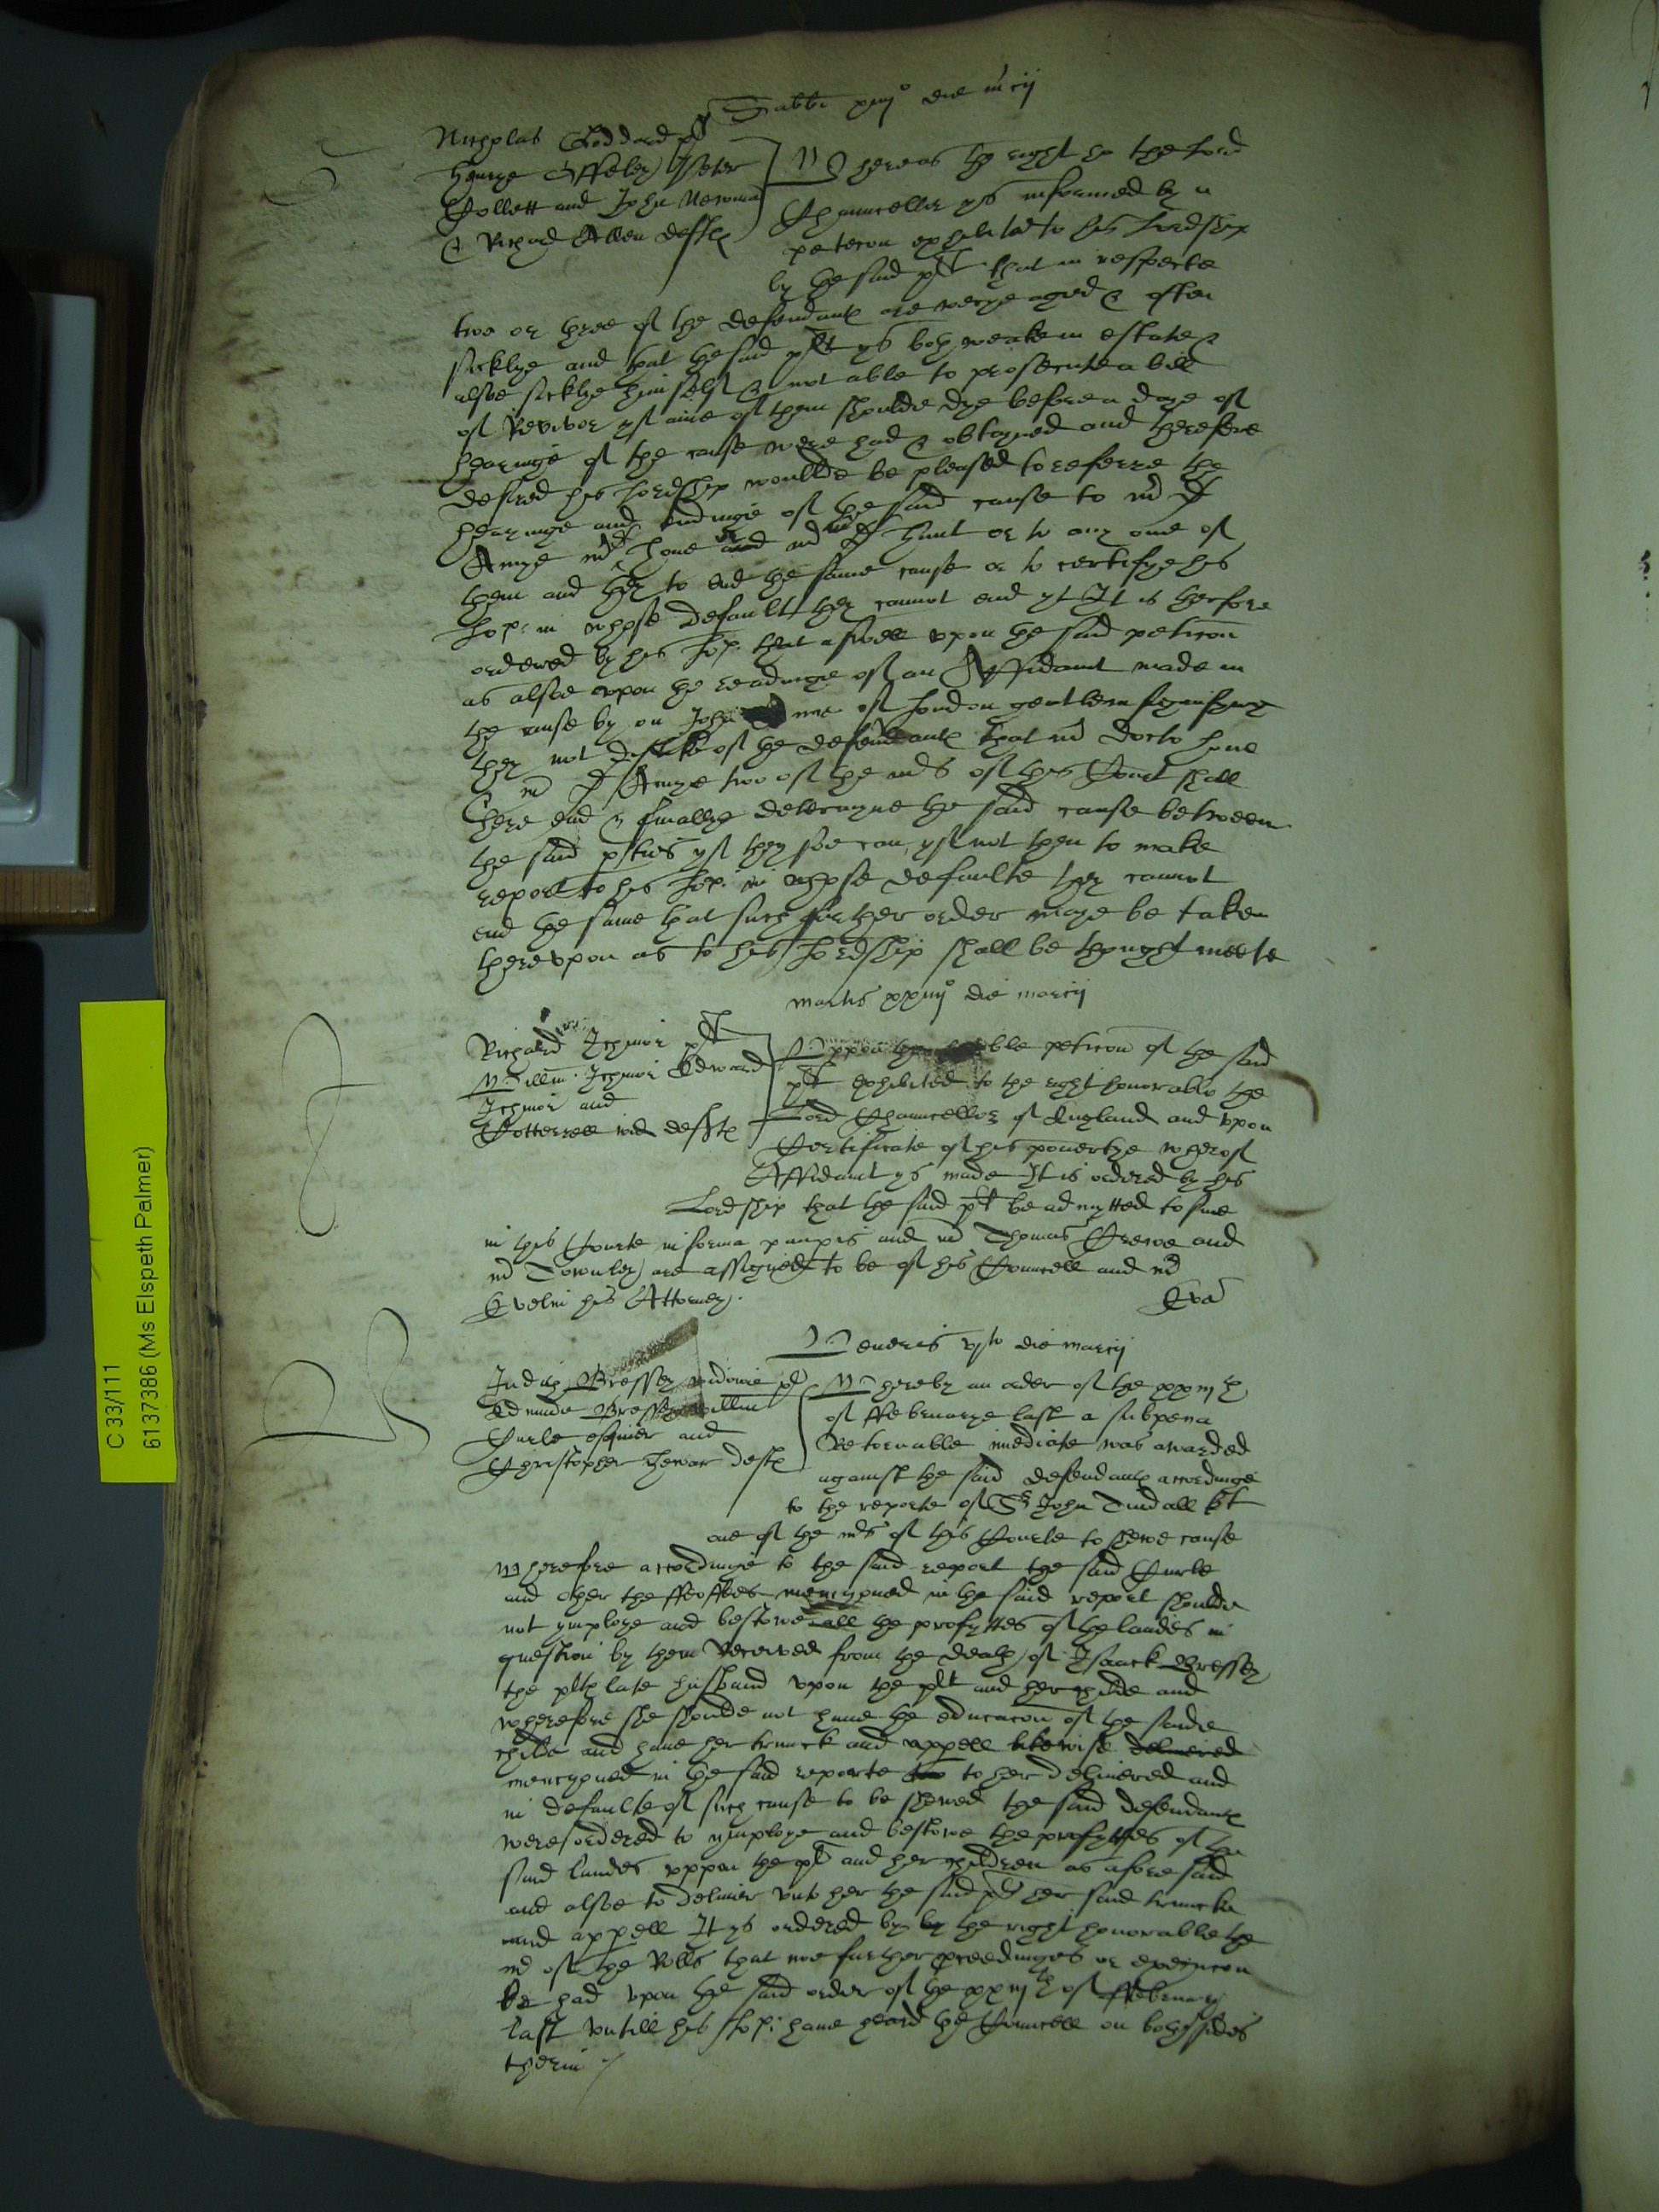 Sabbti xiiijo die mrcij
Nicholas Goddard pl
henrye Offeley Peter
Collett and John Newma
& Richard Allen deftes
Whereas the right ho the Lord
Chauncellor ys informed by a
peticon exhibited to his Lordship
by the said plt that in respecte
two or three of the defendantes are verye aged & often
sicklye and that the said plt ys both weake in estate &
alsoe sicklye himself & not able to prosecute a bill
of Revivor yf anie of them should dye before a daye of
hearinge of the cause were had & obtayned and therefore
desired his Lordship woullde be pleased to referre the
hearinge and endinge of the said cause to mr D
Amye mr D hone or mr D hunt or to any one of
them and they to end the same cause or to certifye his
Lop: in whose default they cannot end yt It is therfore
ordered by his Lop. that aswell upon the said peticon
as alsoe upon the readinge of an Affidavit made in
the cause by on John of London gentlem signifyinge
they not dislike of the defendantes that mr doctor hone
mr D Amye two of the mrs of this Court shall
heare end & finallye determyne the said cause betweene
the said pties yf they soe can, yf not then to make
report to his Lop. in whose defaulte they cannot
end the same that such further order maye be taken
thereupon as to his Lordship shall be thought meete
martis xxiiijo die marcij
Richard Ichmor plt
Willm Ichmor Edward
Ichmor and
Cotterell wid deftes
Uppon the humble peticon of the said
plt exhibited to the right honorable the
Lord Chauncellor of England and upon
Certificate of his povertye wherof
Affidavit ys made It is ordered by his
Lordship that the said plt be admytted to sue
in this Courte in forma paupis and mr Thomas Crewe and
mr Townley are assigned to be of his Councell and mr
Evelin his Attorney.
Exa
Veneris vjto die marcij
Judith Bressey widowe pl
Edmunde Bressey willm
Curle esquier and
Christopher hewar deftes
Where by an order of the xxiijth
of ffebruarye last a subpena
Retornable imediate was awarded
against the said defendantes accordinge
to the reporte of Sr John Tindall kt
one of the mrs of this Courte to shewe cause
wherefore accordinge to the said report the said Curle
and other the ffeoffees mencyoned in the said report shoulde
not ymploye and bestowe all the profyttes of the landes in
question by them Received from the death of Isaack Bressey
the pltes late husband upon the plt and her childe and
wherefore she shoulde not have the educacon of the saide
childe and have her trunck and appell likewise delivered
mencyoned in the said reporte too to her delivered and
in defaulte of such cause to be shewed the said defendantes
were ordered to ymploye and bestowe the profyttes of the
said landes uppon the pl and her children as aforesaid
and alsoe to deliver unto her the said pl her said truncke
and appell It ys ordered by by the right honorable the
mr of the Rolls that noe further proceedinges or execucon
be had upon the said order of the xxiijth of ffebruary
last untill his Lop: have heard the Councell on both sides
therin
C 33/111
6137386 (Ms Elspeth Palmer)